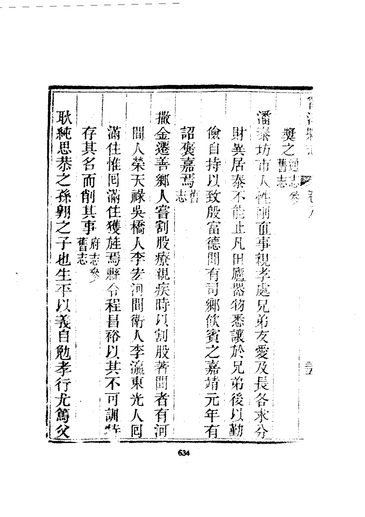 獎之舊志
潘泰坊市人性剛直事親孝處兄弟友愛及長各求分
財異居泰不能止凡田廬器物悉讓於兄弟後以勤
儉自持以致殷富德聞有司鄉飲賓之嘉靖元年有
詔褒嘉焉舊志
撒金遷善鄉人嘗割股療親疾時以割股著聞者有河
間人榮天祿吳橋人李安河間衛人李瀛東光人囘
滿住惟囘滿住獲旌焉縣令程昌裕以其不可訓特
存其名而削其事府志參舊志
耿純思恭之孫翱之子也生平以義自勉孝行尤篤父
634